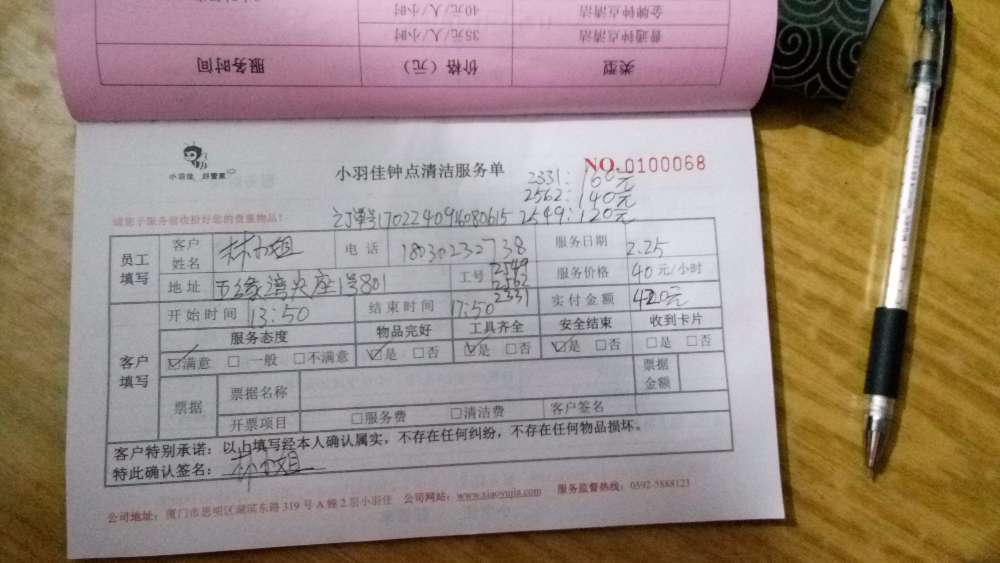 金牌钟点清洁 40元/人/小时
普通钟点清洁 35元/人/小时
类型 价格（元） 服务时间
小羽佳 好管家
小羽佳钟点清洁服务单
NO.0100068
2331:160元
2562:140元
2549:120元
订单号1702240916080615
请您于服务前收捡好您的贵重物品！
员工填写 客户姓名 林小姐 电话 18030232738 服务日期 2.25
地址 五缘湾央座1号801 工号 2549 2562 2331 服务价格 40元/小时
开始时间 13:50 结束时间 17:50 实付金额 420元
客户填写 服务态度 物品完好 工具齐全 安全结束 收到卡片
☑满意 □一般 □不满意 ☑是 □否 ☑是 □否 ☑是 □否 □是 □否
票据 票据名称 票据金额
开票项目 □服务费 □清洁费 客户签名
客户特别承诺：以上填写经本人确认属实，不存在任何纠纷，不存在任何物品损坏。
特此确认签名：林小姐
公司地址：厦门市思明区湖滨东路319号A幢2层小羽佳 公司网站：www.xiaoyujia.com 服务监督热线：0592-5888123